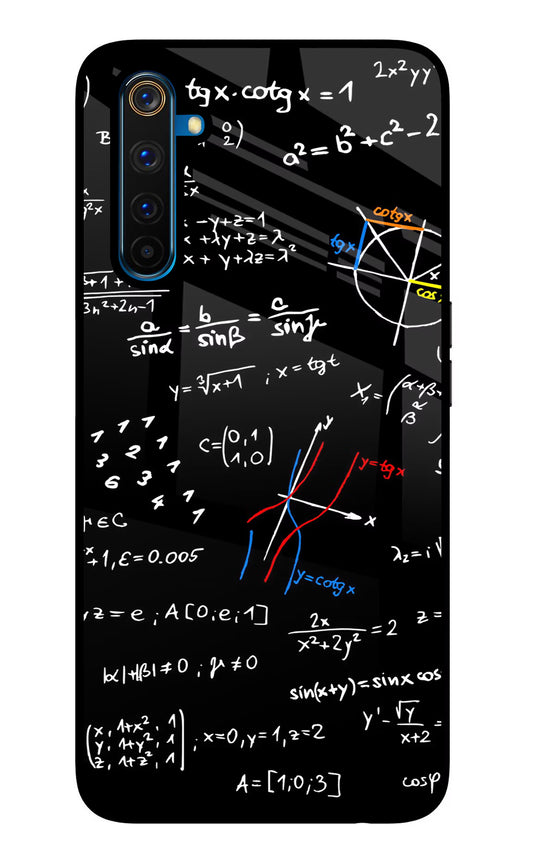 tgx·cotgx=1
2x²yy
a²=b²+c²-2
cotgx
tgx
x
cos
-y+z=1
+λy+z=λ
x+y+λz=λ²
3n²+2n-1
a/sinα = b/sinβ = c/sinγ
y=∛(x+1) ; x=tgt
1 1 1
3 2 1
6 3 1
4 1
1
C=(0,1
1,0)
y
y=tgx
x
y=cotgx
+1, ε=0.005
λ₂=i
z=e ; A[0;e;1]
2x/(x²+2y²)=2
z=
|α|+|β|≠0 ; γ≠0
sin(x+y)=sinx cos
(x, 1+x², 1
y, 1+y², 1
z, 1+z², 1) ; x=0, y=1, z=2
y'-√y/(x+2)=
A=[1;0;3]
cosφ